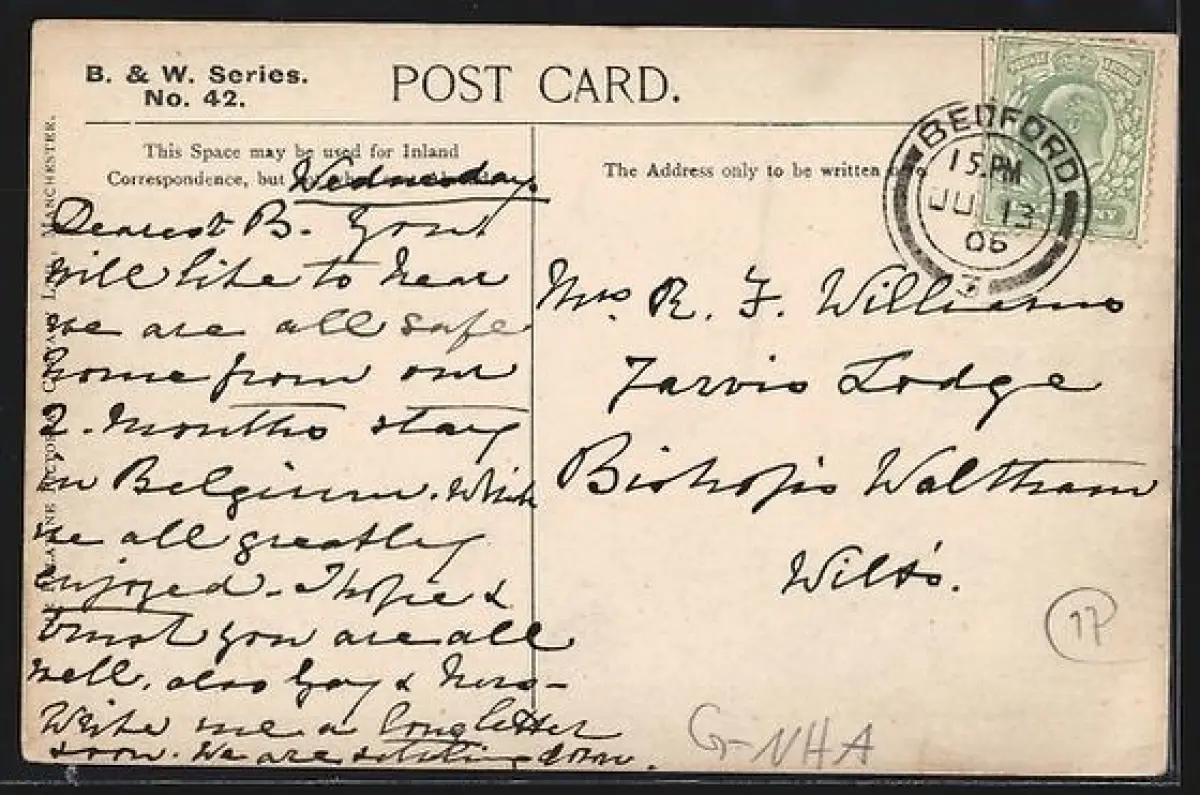 B. & W. Series.
No. 42.
POST CARD.
MANCHESTER.
This Space may be used for Inland
Correspondence, but
The Address only to be written
BEDFORD
15.PM
JU 13
06
Wednesday
Dearest B. You
will like to hear
we are all safe
home from our
2. Months stay
in Belgium. Which
we all greatly
enjoyed. I hope &
trust you are all
well. also Guy &
Write me a long letter
soon. We are settling down.
Mrs. R. F. Williams
Jarvis Lodge
Bishops Waltham
Wilts.
17
G-NHA